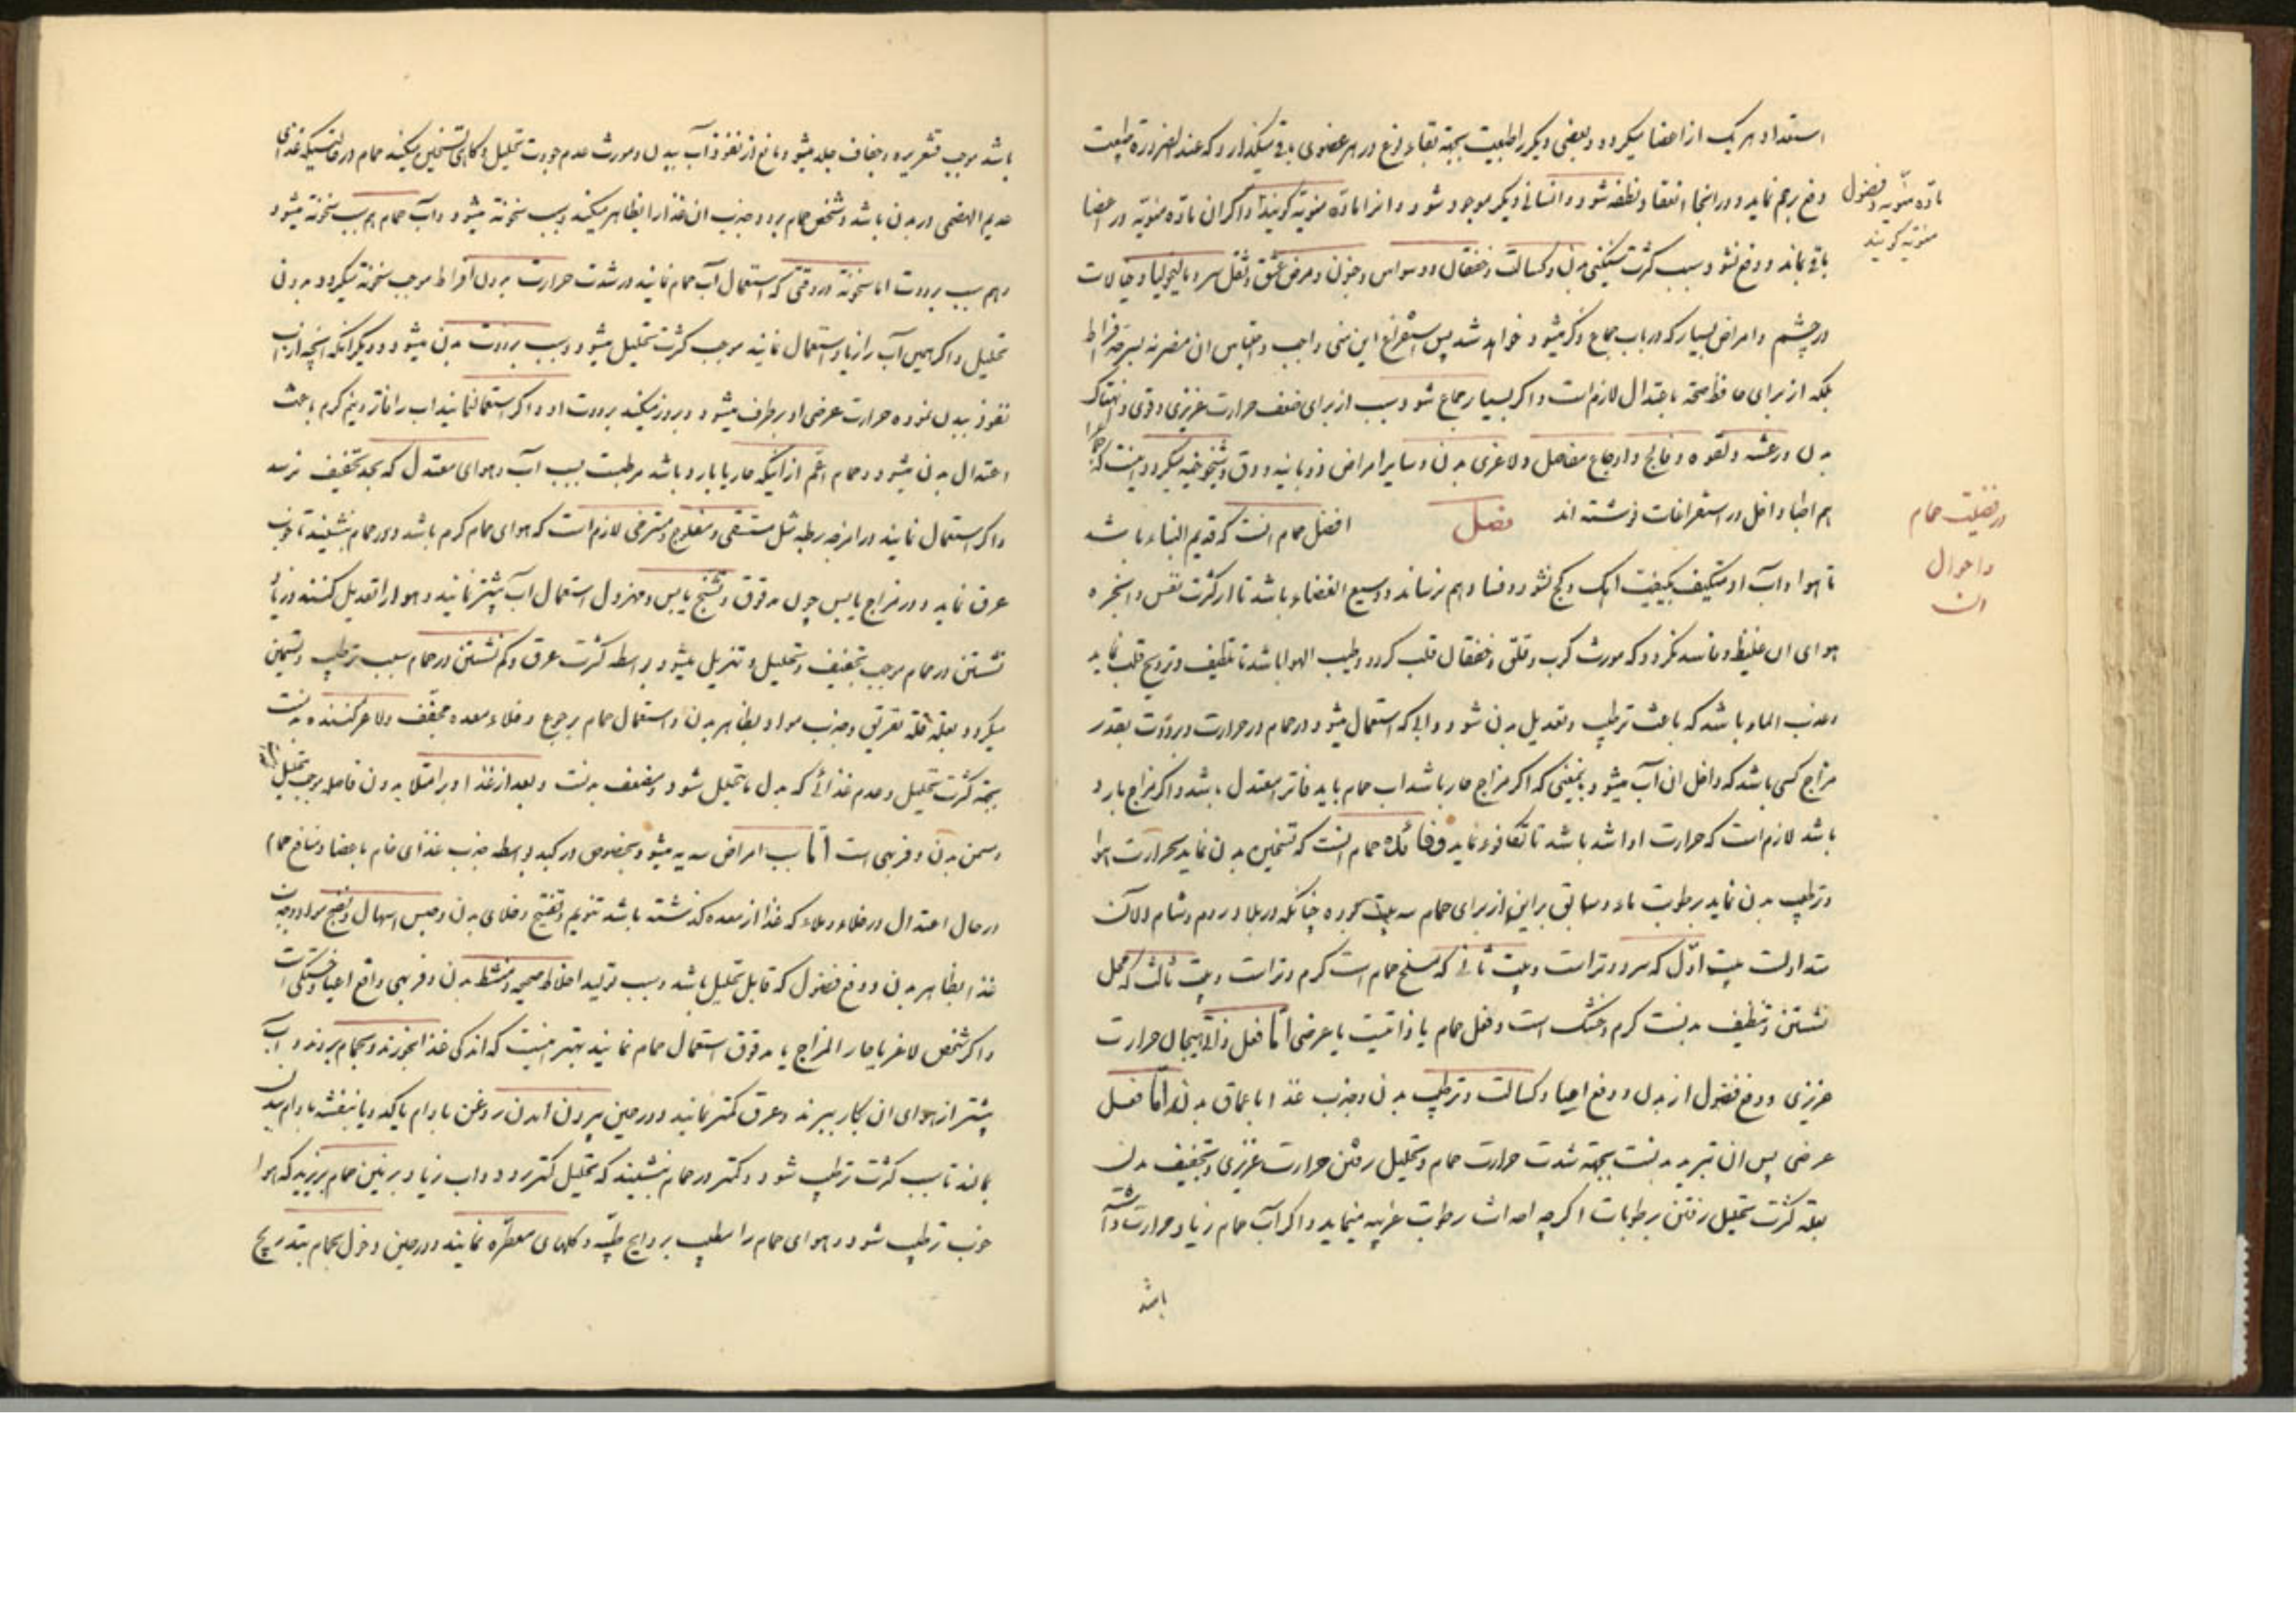 استعداد هر یک از اعضا میکردد و بعضی دیکر را طبیعت بجهة بقاء نوع در هر عضوی باقی میکذارد که عند الضرورة طبیعت
دفع برحم نماید و در انجا انعقاد نطفه شود و انسانی دیکر موجود شود و انرا ماده منویه کویند و اکر ان ماده منویه در اعضا
باقی بماند و دفع نشود سبب کثرت سنکینی بدن و کسالت و خفقان و وسواس و جنون و مرض عشق و ثقل سر و مالیخولیا و خیالات
در چشم و امراض بسیار که در باب جماع ذکر میشود خواهد شد پس استفراغ این منی واجب و احتباس ان مضر نه بسرحد افراط
بلکه از برای حافظ صحة باعتدال لازم است و اکر بسیار جماع شود سبب از برای ضعف حرارت غریزی و قوی و انتهاک
بدن و رعشه و لقوه و فالج و اوجاع مفاصل و لاغری بدن و سایر امراض ذوبانیه و دق و شیخوخیه میکردد اینست که حمام را
هم اطبا داخل در استفراغات نوشته اند فصل افضل حمام انست که قدیم البناء باشد
تا هوا و آب او متکیف بکیفیت اهک و کج نشود و فساد بهم نرساند و وسیع الفضاء باشد تا از کثرت نفس و ابخره
هوای ان غلیظ و فاسد نکردد که مورث کرب و قلق و خفقان قلب کردد و طیب الهوا باشد تا تلطیف و ترویح قلب نماید
و عذب الماء باشد که باعث ترطیب و تعدیل بدن شود و ابی که استعمال میشود در حمام در حرارت و برودت بقدر
مزاج کسی باشد که داخل ان آب میشود بمعنی که اکر مزاج حار باشد اب حمام باید فاتر معتدل باشد و اکر مزاج بارد
باشد لازم است که حرارت او اشد باشد تا تکافوء نماید و فائده حمام انست که تسخین بدن نماید بحرارت هوا
و ترطیب بدن نماید برطوبت ماء و سابق براین از برای حمام سه بیت بوده چنانکه در بلاد روم و شام الان
متداولست بیت اول که سرد و تر است و بیت ثانی که مسلخ حمام است کرم و تر است و بیت ثالث که محل
نشستن و تنظیف بدنست کرم و خشک است و فعل حمام یا ذاتیست یا عرضی اما فعل ذاتی هیجان حرارت
غریزی و دفع فضول از بدن و دفع اعیا و کسالت و ترطیب بدن و جذب غذا باعماق بدن و اما فعل
عرضی پس ان تبرید بدنست بجهة شدت حرارت حمام و تحلیل رفتن حرارت غریزی و تجفیف بدن
بعلة کثرت تحلیل رفتن رطوبات اکرچه احداث رطوبت غریبه مینماید و اکر آب حمام زیاد حرارت داشته
باشد
ماده منویه و فضول
منویه کویند
در فضیلت حمام
و احوال
ان
باشد موجب قشعریره و جفاف جلد میشود و مانع از نفوذ آب ببدن و مورث عدم جودت تحلیل و کاهی تسخین میکند حمام در حالتیکه غذای
عدیم الهضمی در بدن باشد و شخص حمام برود و جذب ان غذا را بظاهر میکند و سبب سخونة میشود و آب حمام هم سبب سخونة میشود
و هم سبب برودت اما سخونة در وقتی که استعمال آب حمام نمایند در شدت حرارت بدون افراط موجب سخونة میکردد بدون
تحلیل و اکر همین آب را زیاد استعمال نمایند موجب کثرت تحلیل میشود و سبب برودت بدن میشود و دیکر انکه انچه از اب
نفوذ ببدن نموده حرارت عرضی او برطرف میشود و بروز میکند برودت او و اکر استعمال نمایند اب را فاتر و نیم کرم باعث
اعتدال بدن میشود و حمام اعم از اینکه حار یا بارد باشد مرطبست بسبب آب و هوای معتدل که بحد تجفیف نرسد
و اکر استعمال نمایند در امزجه رطبه مثل مستسقی و مفلوج و مسترخی لازم است که هوای حمام کرم باشد و در حمام بنشینند تا خوب
عرق نماید و در مزاج یابس چون مدقوق و تشنج یابس و مهزول استعمال آب بیشتر نمایند و هوا را تعدیل کنند و زیاد
نشستن در حمام موجب تجفیف و تحلیل و تنزیل میشود بواسطه کثرت عرق و کم نشستن در حمام سبب ترطیب و تسمین
میکردد بعلة قلة تعریق و جذب مواد بظاهر بدن و استعمال حمام بر جوع و خلاء معده مجفف و لاغر کننده بدنست
بجهة کثرت تحلیل و عدم غذائی که بدل ما یتحلل شود و مضعف بدنست و بعد از غذا و بر امتلا بدون فاصله موجب
و سمن بدن و فربهی است اما سبب امراض سدیه میشود بخصوص در کبد بواسطه جذب غذای خام باعضا و منافع حمام
در حال اعتدال در خلاء و ملاء که غذا از معده کذشته باشد تنویم و تفتیح و خلای بدن و حبس اسهال و نضج مواد و جذب
غذا بظاهر بدن و دفع فضول که قابل تحلیل باشد و سبب تولید اخلاط صحیحه و منشط بدن و فربهی و رافع اعیا و خستکی است
و اکر شخص لاغر یا حار المزاج یا مدقوق استعمال حمام نمایند بهتر اینست که اندکی غذا بخورند و بحمام بروند و آب
بیشتر از هوای ان بکار ببرند و عرق کمتر نمایند و در حین بیرون امدن روغن بادام یا کدو یا بنفشه بادام ببدن
بمالند تا سبب کثرت ترطیب شود و کمتر در حمام بنشینند که تحلیل کمتر رود و اب زیاد بر زمین حمام بریزند که هوا
خوب ترطیب شود و هوای حمام را مطیب بروایح طیبه و کلهای معطره نمایند و در حین دخول بحمام بتدریج